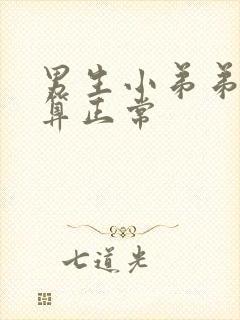 男生小弟弟
算正常
七道光